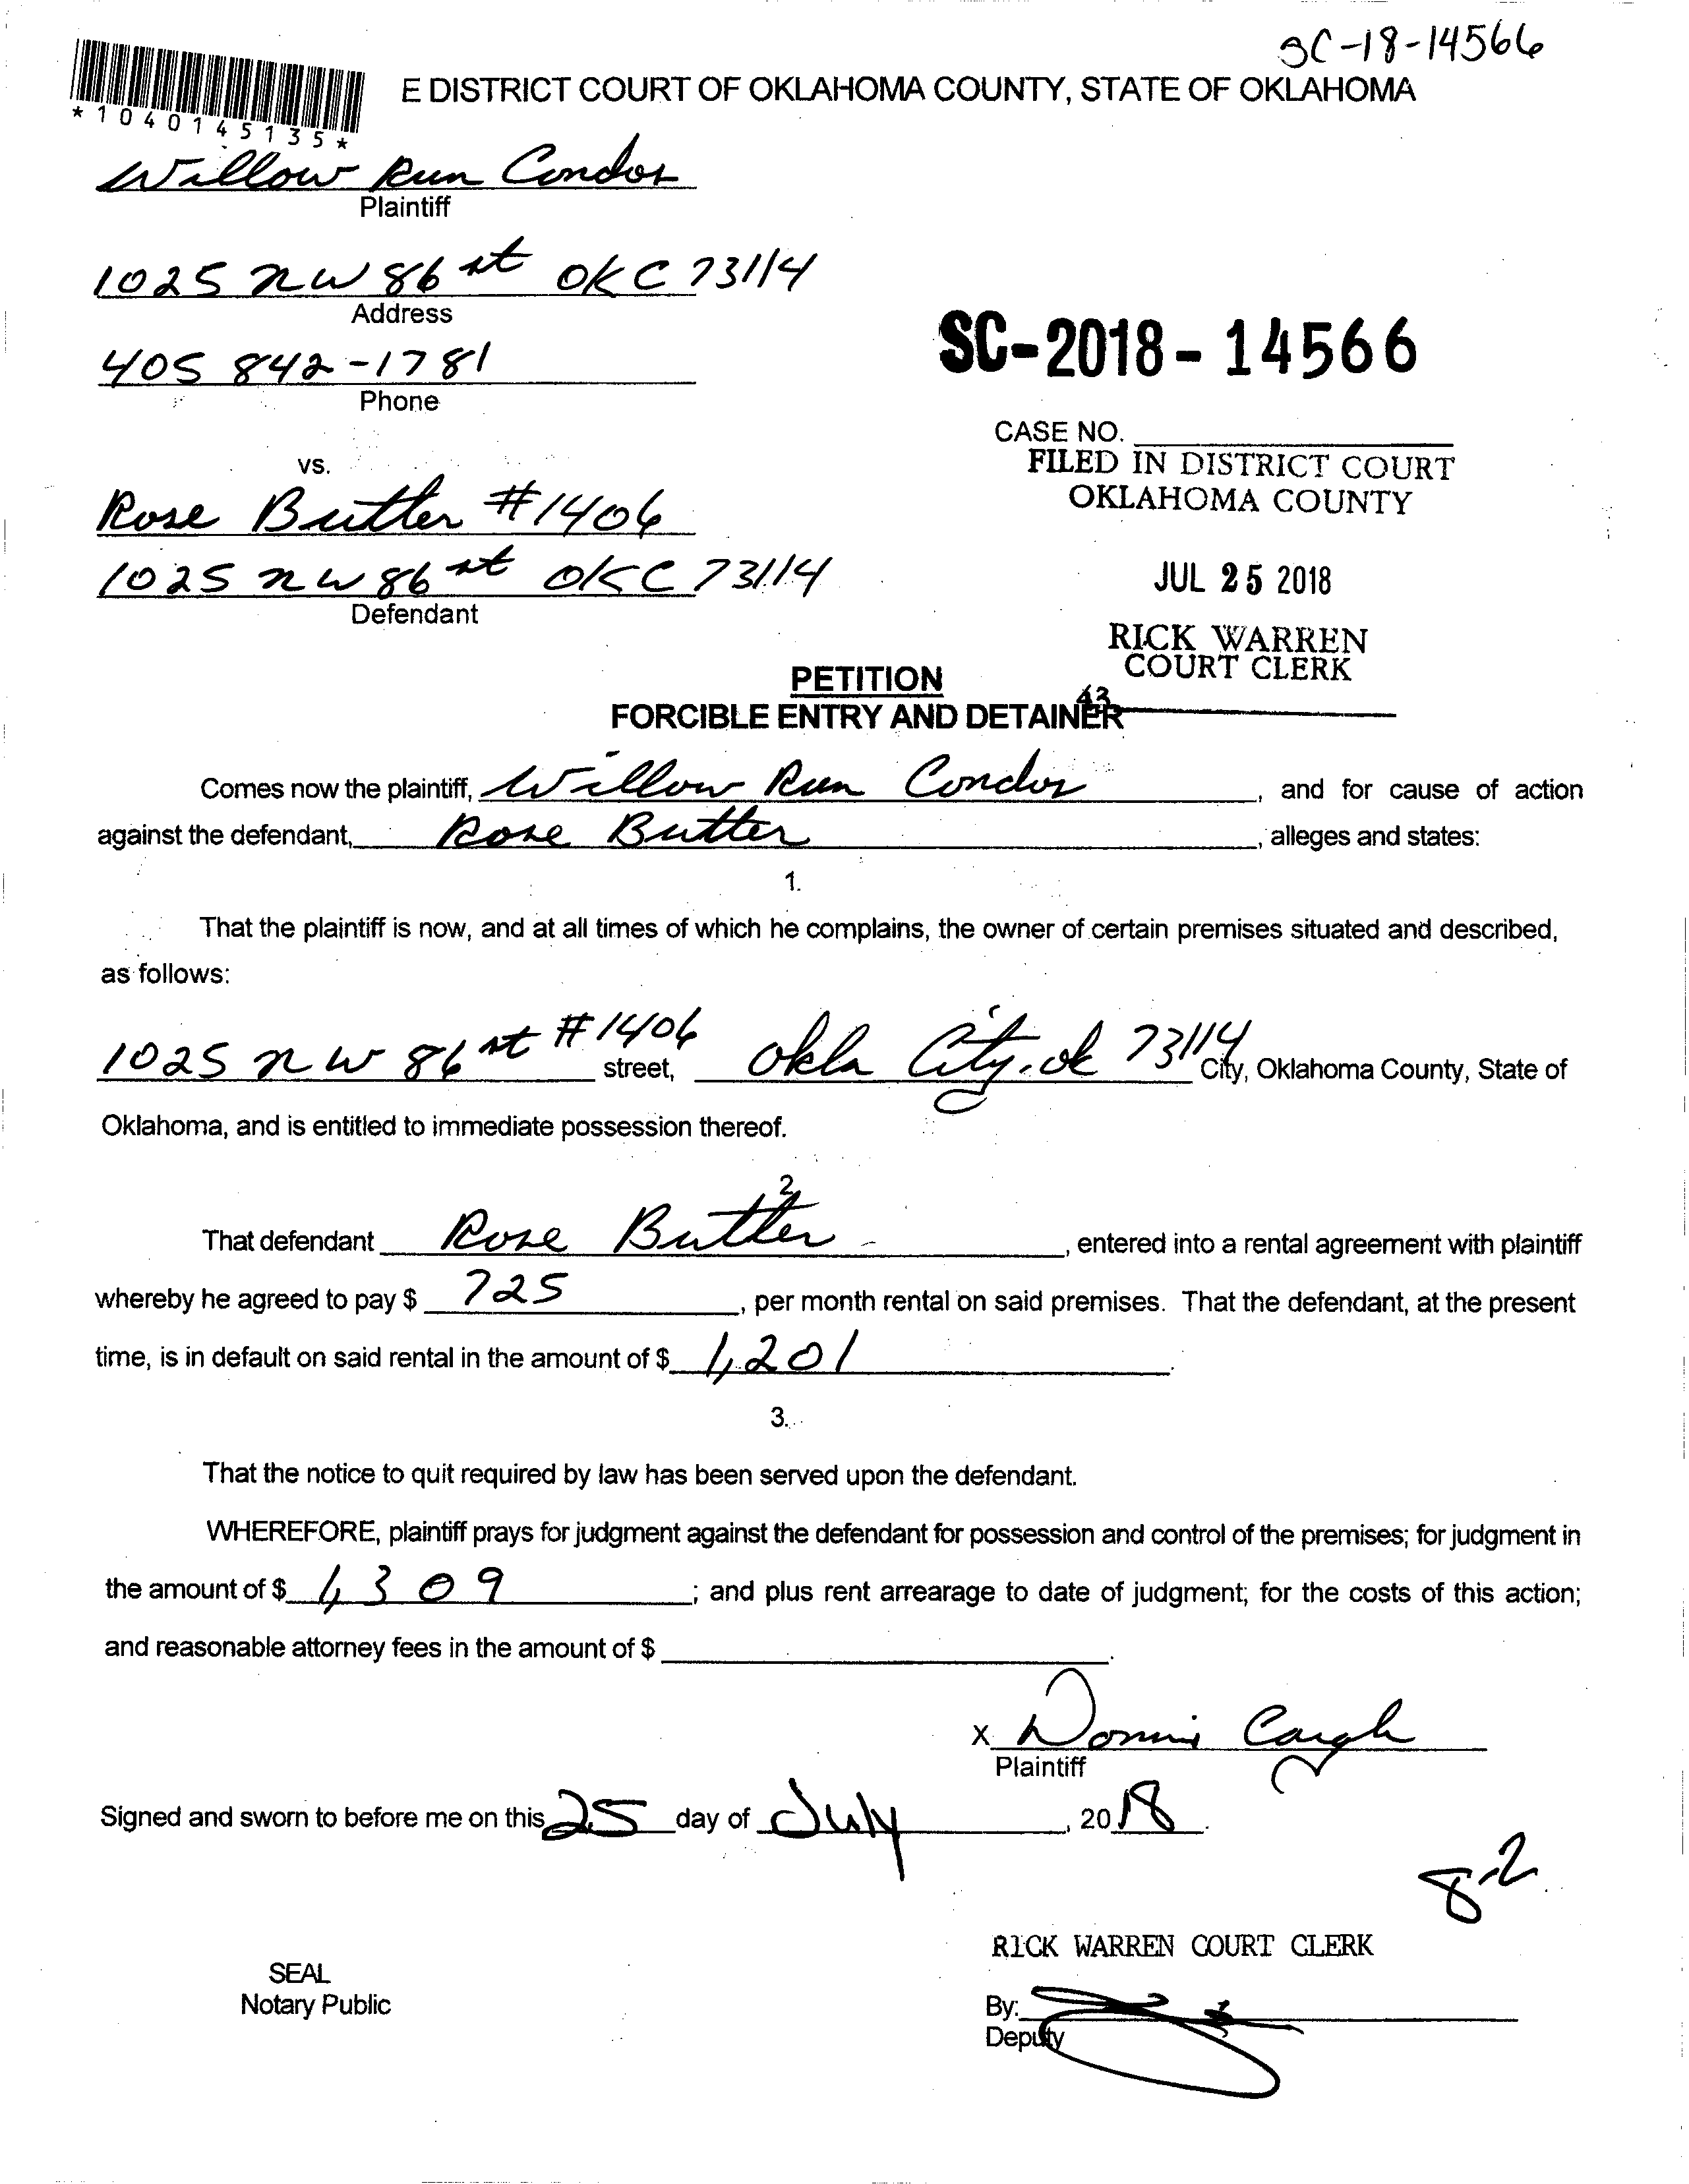 SC-18-14566
E DISTRICT COURT OF OKLAHOMA COUNTY, STATE OF OKLAHOMA
*1040145135*
Willow Run Condos
Plaintiff
1025 NW 86 st OKC 73114
Address
405 842-1781
Phone
SC-2018-14566
CASE NO.
FILED IN DISTRICT COURT
OKLAHOMA COUNTY
vs.
Rose Butler #1406
1025 NW 86 st OKC 73114
Defendant
JUL 25 2018
RICK WARREN
COURT CLERK
43
PETITION
FORCIBLE ENTRY AND DETAINER
Comes now the plaintiff, Willow Run Condos, and for cause of action
against the defendant, Rose Butler, alleges and states:
1.
That the plaintiff is now, and at all times of which he complains, the owner of certain premises situated and described,
as follows:
1025 NW 86 st #1406 street, Okla City, ok 73114 City, Oklahoma County, State of
Oklahoma, and is entitled to immediate possession thereof.
2.
That defendant Rose Butler, entered into a rental agreement with plaintiff
whereby he agreed to pay $ 725, per month rental on said premises. That the defendant, at the present
time, is in default on said rental in the amount of $ 1,201.
3.
That the notice to quit required by law has been served upon the defendant.
WHEREFORE, plaintiff prays for judgment against the defendant for possession and control of the premises; for judgment in
the amount of $ 1,309; and plus rent arrearage to date of judgment; for the costs of this action;
and reasonable attorney fees in the amount of $ .
X
Plaintiff
Signed and sworn to before me on this 25 day of July, 2018.
8-2
RICK WARREN COURT CLERK
SEAL
Notary Public
By:
Deputy